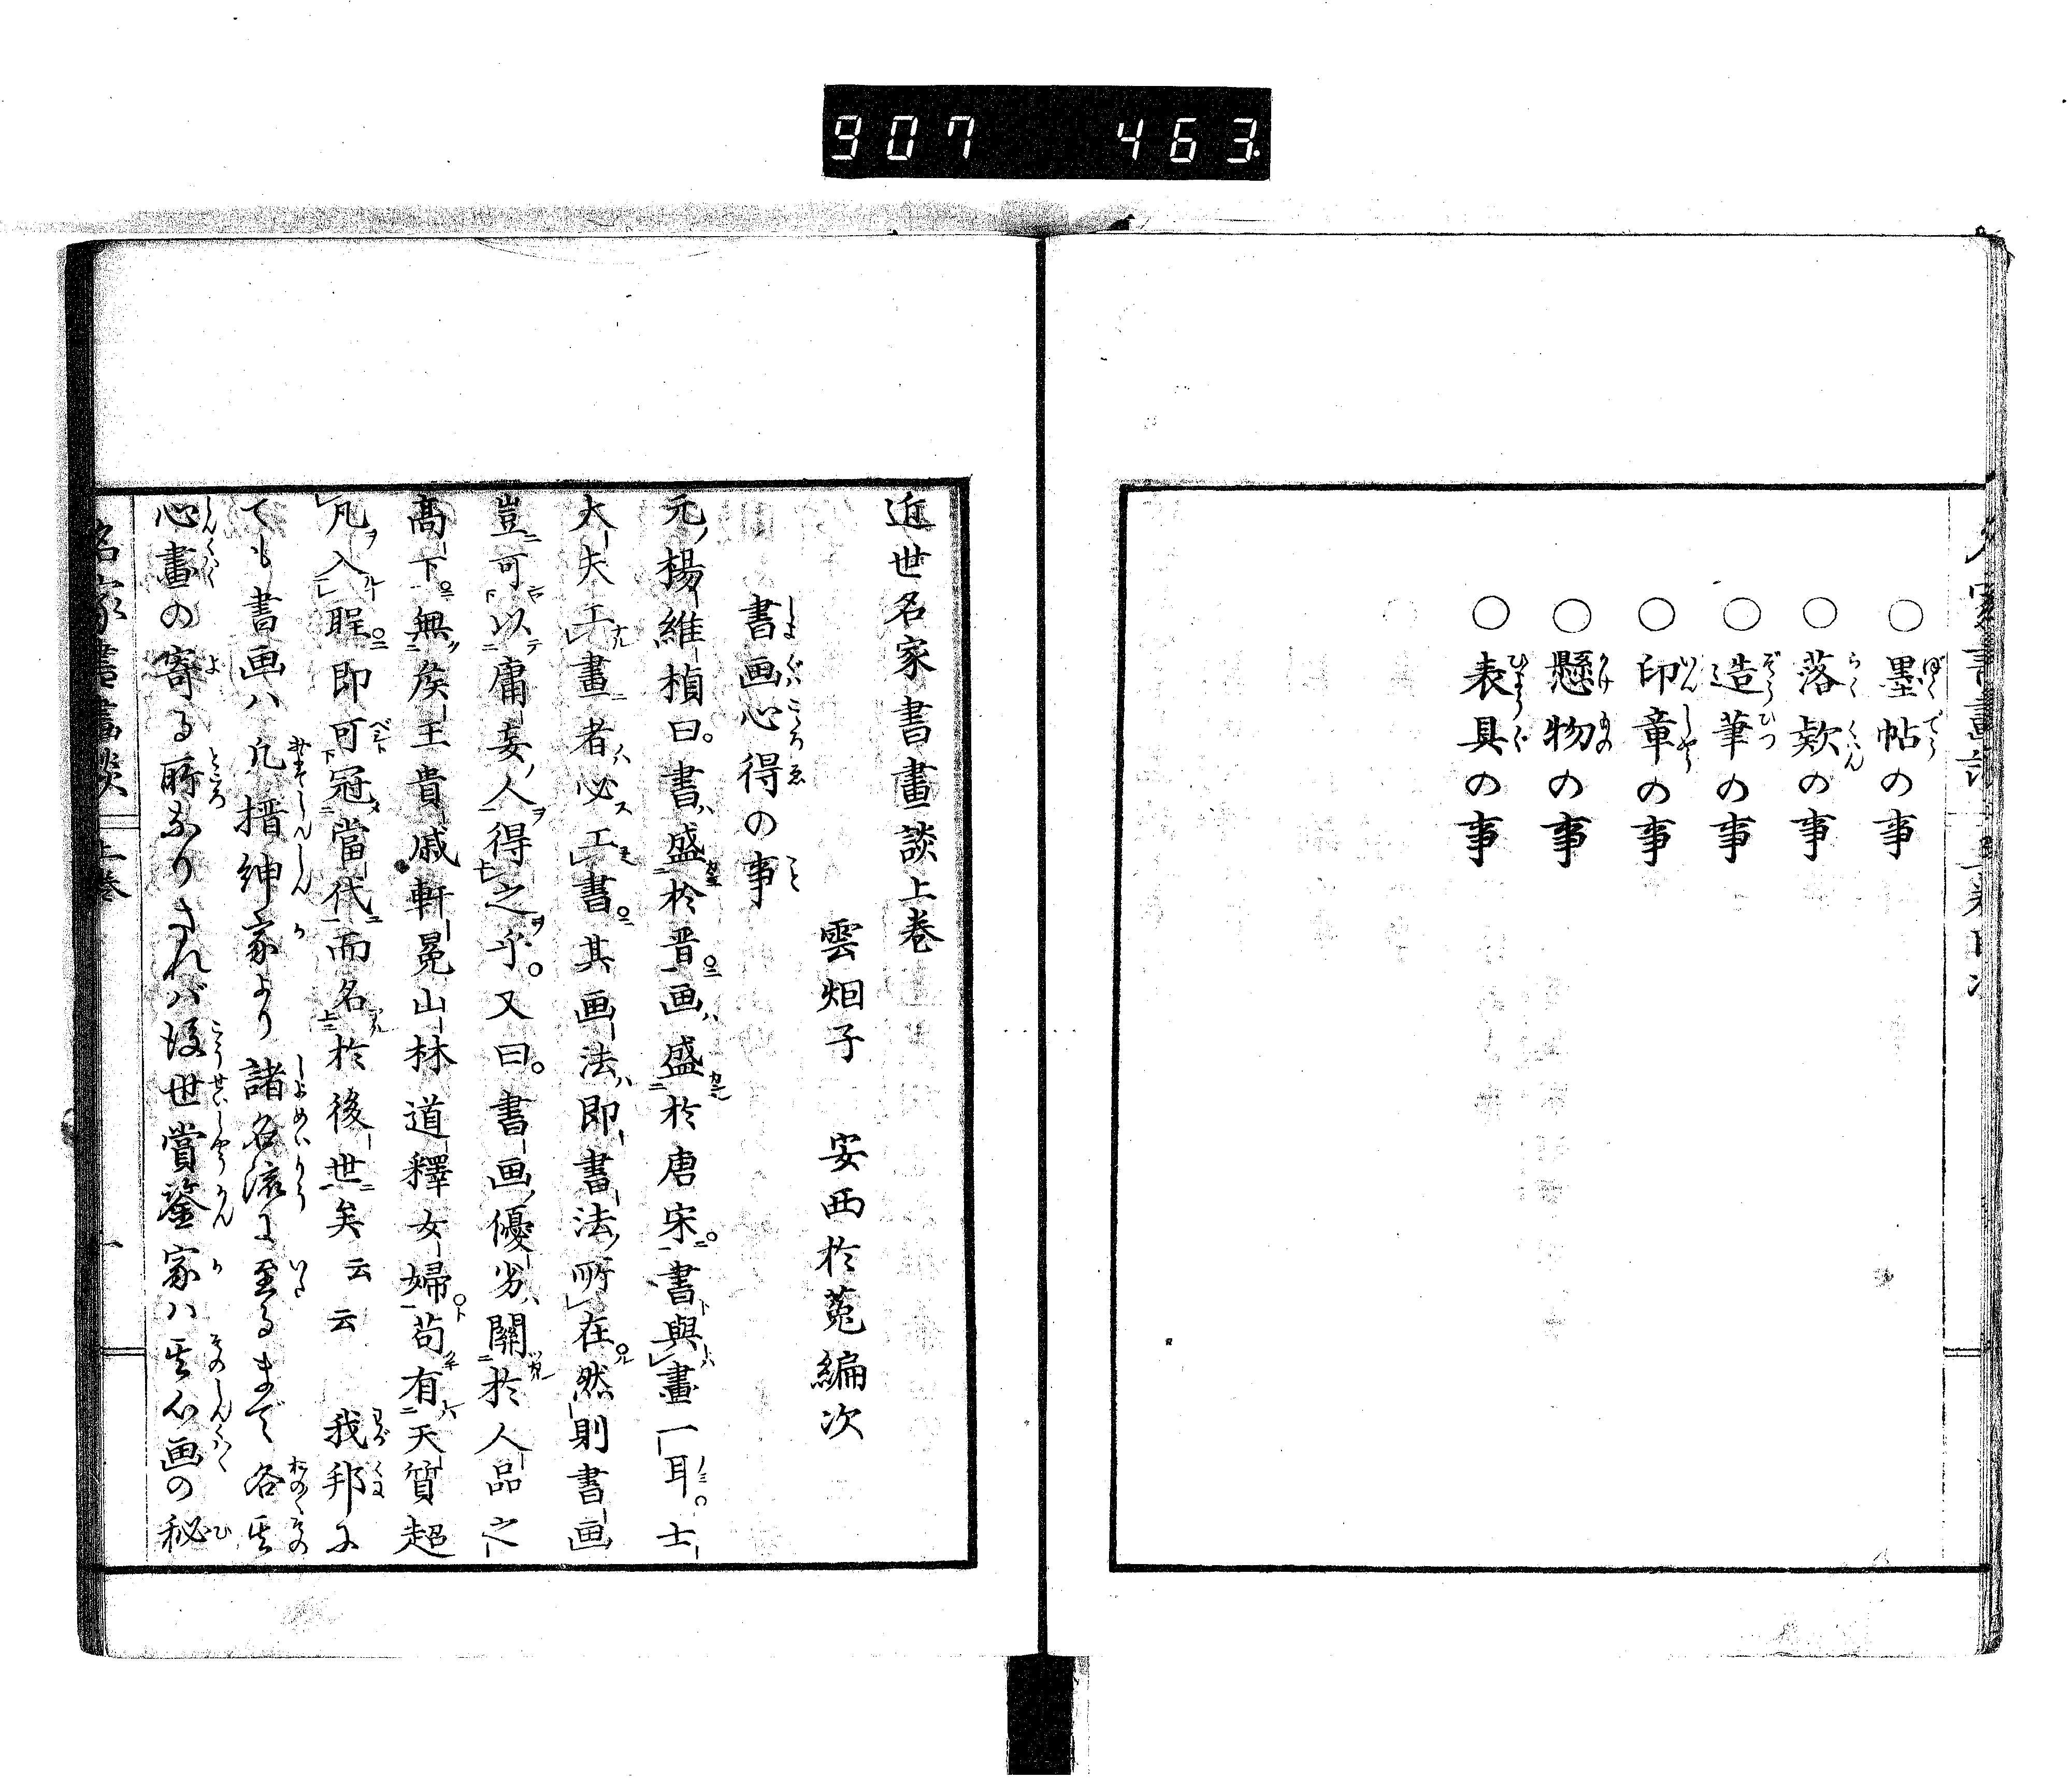 907 463
○墨帖の事
○落欵の事
○造筆の事
○印章の事
○懸物の事
○表具の事
近世名家書畫談上巻
雲烟子 安西於菟編次
書画心得の事
元楊維楨曰。書盛於晋。画盛於唐宋。書與畫一耳。士
大夫工畫者必工書。其画法即書法所在。然則書画
豈可以庸妄人得之乎。又曰。書画優劣關於人品之
高下。無矦王貴戚軒冕山林道釋女婦。苟有天質超
凡入聖。即可冠當代而名於後世矣云云 我邦に
ても書画ハ凡搢紳家より諸名流に至るまで各其
心畫の寄る所なりされバ後世賞鑒家ハ其心画の秘
名家書畫談 上巻 一